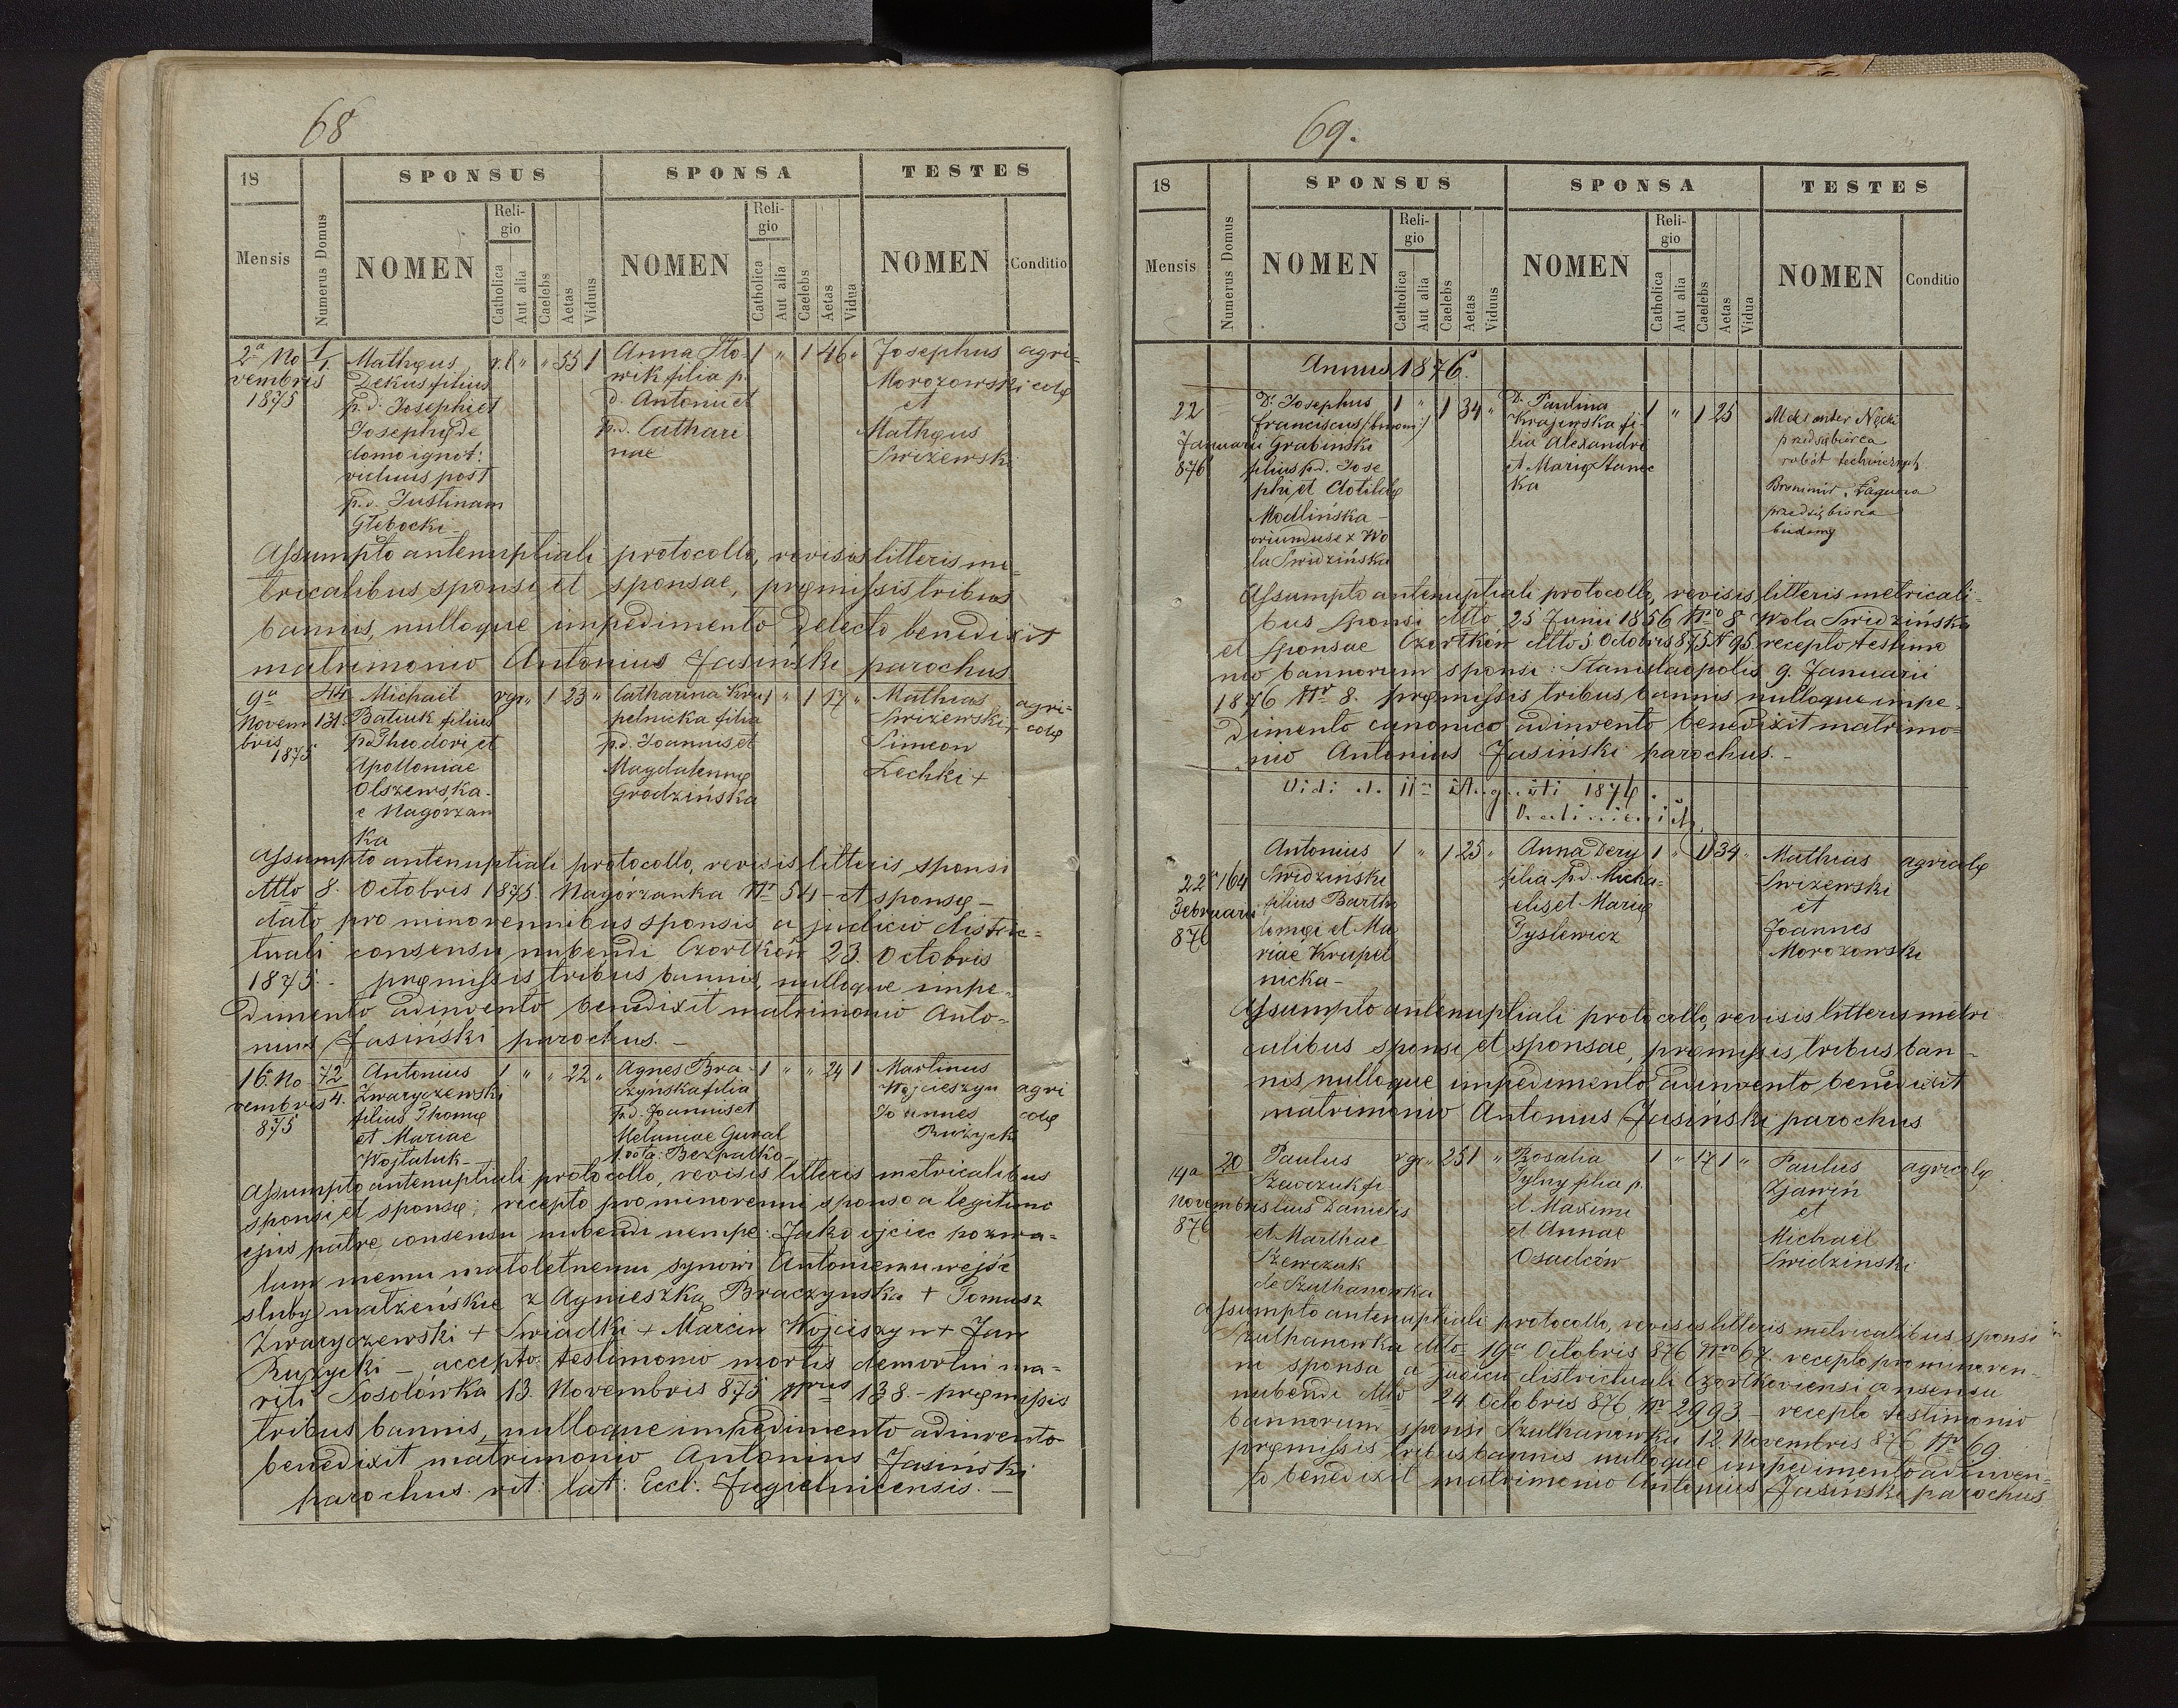 68
18
SPONSUS
SPONSA
TESTES
Mensis
Numerus Domus
NOMEN
Religio
Catholica
Aut alia
Caelebs
Aetas
Viduus
NOMEN
Religio
Catholica
Aut alia
Caelebs
Aetas
Vidua
NOMEN
Conditio
2ª No
vembris
1875
1/1
Mathęus
Dekus filius
p.d. Josephi et
Josephę de
domo ignot:
viduus post
p.d. Justinam
Głebocki
r.l " " 55 1
Anna Sło-
wik filia p.
d. Antonii et
p.d. Cathari
nae
1 " 1 46 "
Josephus
Morozowski
et
Mathęus
Swiżewski
agri=
colę
Assumpto antenuptiali protocollo, revisis litteris me=
tricalibus sponsi et sponsae, pręmissis tribus
bannis, nulloque impedimento detecto benedixit
matrimonio Antonius Jasiński parochus
9ª
Novem
bris
1875
44
131
Michael
Batiuk filius
p.d. Theodori et
Apolloniae
Olszewska-
e Nagórzan
ka
r.gr. " 1 23 "
Catharina Kru
pelnicka filia
p.d. Joannis et
Magdalennę
Grodzińska
1 " 1 17 "
Mathias
Swizewski +
Simeon
Zechki +
agri-
colę
Assumpto antenuptiali protocollo, revisis litteris sponsi
ddto 8. Octobris 1875. Nagórzanka Nr 54 - et sponsę -
dato pro minorennibus sponsis a judicio distric=
tuali consensu nubendi Czortków 23. Octobris
1875. - pręmissis tribus bannis, nulloque impe=
dimento adinvento benedixit matrimonio Anto=
nius Jasiński parochus. -
16ª No
vembris
875
72
4.
Antonius
Zwaryczewski
filius Thomę
et Mariae
Wojtaluk -
1 " " 22 "
Agnes Bra-
czynska filia
p.d. Joannis et
Melaniae Gural
1 vota: Bezpalko -
1 " " 24 1
Martinus
Wojcieszyn
Joannes
Rużycki
agri
colę
Assumpto antenuptiali protocollo, revisis litteris metricalibus
sponsi et sponsę; recepto pro minorenni sponso a legitimo
ejus patre consensu nubendi nempe: Jako ojciec pozwa-
lam memu małoletnemu synowi Antoniemu wejść
sluby małżeńskie z Agnieszką Braczynska + Tomasz
Zwaryczewski + Swiadki + Marcin Wojciszyn + Jan
Rużycki - accepto testimonio mortis demortui ma-
riti Sosolówka 13. Novembris 875 Nrus 138. - pręmissis
tribus bannis, nulloque impedimento adinvento
benedixit matrimonio Antonius Jasiński
parochus rit: lat: Eccl. Jagielnicensis. -
69.
18
SPONSUS
SPONSA
TESTES
Mensis
Numerus Domus
NOMEN
Religio
Catholica
Aut alia
Caelebs
Aetas
Viduus
NOMEN
Religio
Catholica
Aut alia
Caelebs
Aetas
Vidua
NOMEN
Conditio
Annus 1876.
22
Januarii
876
D. Josephus
Franciscus /: binom :/
Grabinski
filius p.d. Jose
phi et Clotildę
Modlińska -
oriundus ex Wo
la Swidzińska
1 " 1 34 "
D. Paulina
Krajewska fi-
lia Alexandri
et Marię Stanec
ka
1 " 1 25
przedsiębiorca
robót technicznych
Bronimir
przedsiębiorca
budowy
Assumpto antenuptiali protocollo, revisis litteris metricali=
bus sponsi ddto 25 Junii 1856 Nro 8 Wola Swidzińska
et sponsae Czortków ddto 5 Octobris 875 N 95. recepto testimo
nio bannorum sponsi: Stanislaopolis 9. Januarii
1876 Nr 8. pręmissis tribus bannis nulloque impe-
dimento canonico adinvento benedixit matrimo=
nio Antonius Jasiński parochus. -
Vidi d. 11ª Augusti 1876.
22ª
Februarii
876
164
Antonius
Swidzinski
filius Bartho
lomęi et Ma
riae Krupel
nicka -
1 " 1 25 "
Anna Dery
filia p.d. Micha=
elis et Marię
Tyslewicz
1 " 1 34 "
Mathias
Swizewski
et
Joannes
Morozowski
agricolę
Assumpto antenuptiali protocollo, revisis litteris metri
calibus sponsi et sponsae, pręmissis tribus ban=
nis nulloque impedimento adinvento benedixit
matrimonio Antonius Jasiński parochus
14ª
Novembris
876
20
Paulus
Szewczuk fi
lius Danielis
et Marthae
Szewczuk
de Szulhanówka
r.gr. " 25 1 "
Rosalia
Tylny filia p.
d. Maximi
et Annae
Osadców
1 " 17 1 "
Paulus
Zjawiń
et
Michael
Swidzinski
agricolę
Assumpto antenuptiali protocollo, revisis litteris metricalibus sponsi
Szulhanówka ddto 19ª Octobris 876 Nro 67. recepto pro minoren=
ni sponsa a judicio districtuali Czortkoviensi consensu
nubendi ddto 24 Octobris 876 Nr 2993 - recepto testimonio
bannorum sponsi Szulhanówka 12. Novembris 876 Nr 69
pręmissis tribus bannis nulloque impedimento adinven=
to benedixit matrimonio Antonius Jasiński parochus